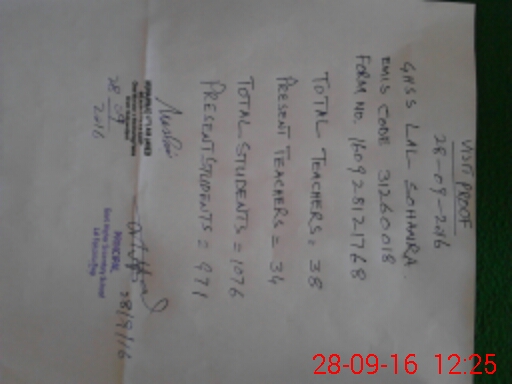 VISIT PROOF
28-09-2016
GHSS LAL SOHANRA.
EMIS CODE 31260018
FORM NO. 160928121768
TOTAL TEACHERS = 38
PRESENT TEACHERS = 34
TOTAL STUDENTS = 1076
PRESENT STUDENTS = 971
28 09
2016
PRINCIPAL
Govt Higher Secondary School
28/9/16
28-09-16 12:25